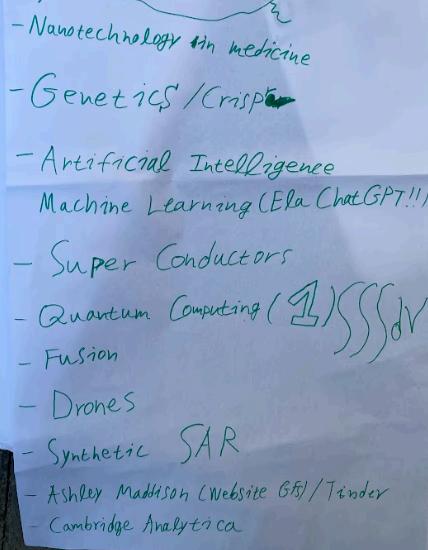 - Nanotechnology in medicine
- Genetics / Crispr
- Artificial Intelligence
Machine Learning (Ela ChatGPT!!)
- Super Conductors
- Quantum Computing (1) ∫∫∫dV
- Fusion
- Drones
- Synthetic SAR
- Ashley Maddison (Website Gfs) / Tinder
- Cambridge Analytica